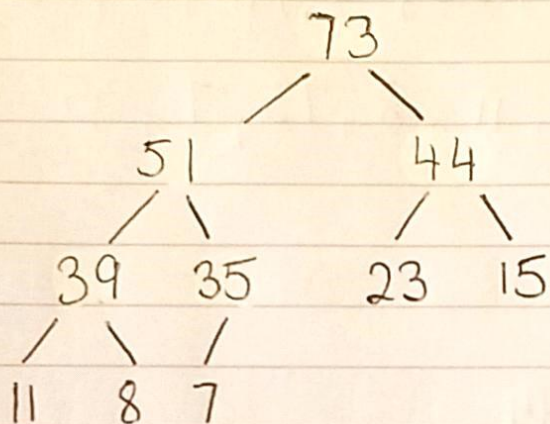 73
51 44
39 35 23 15
11 8 7